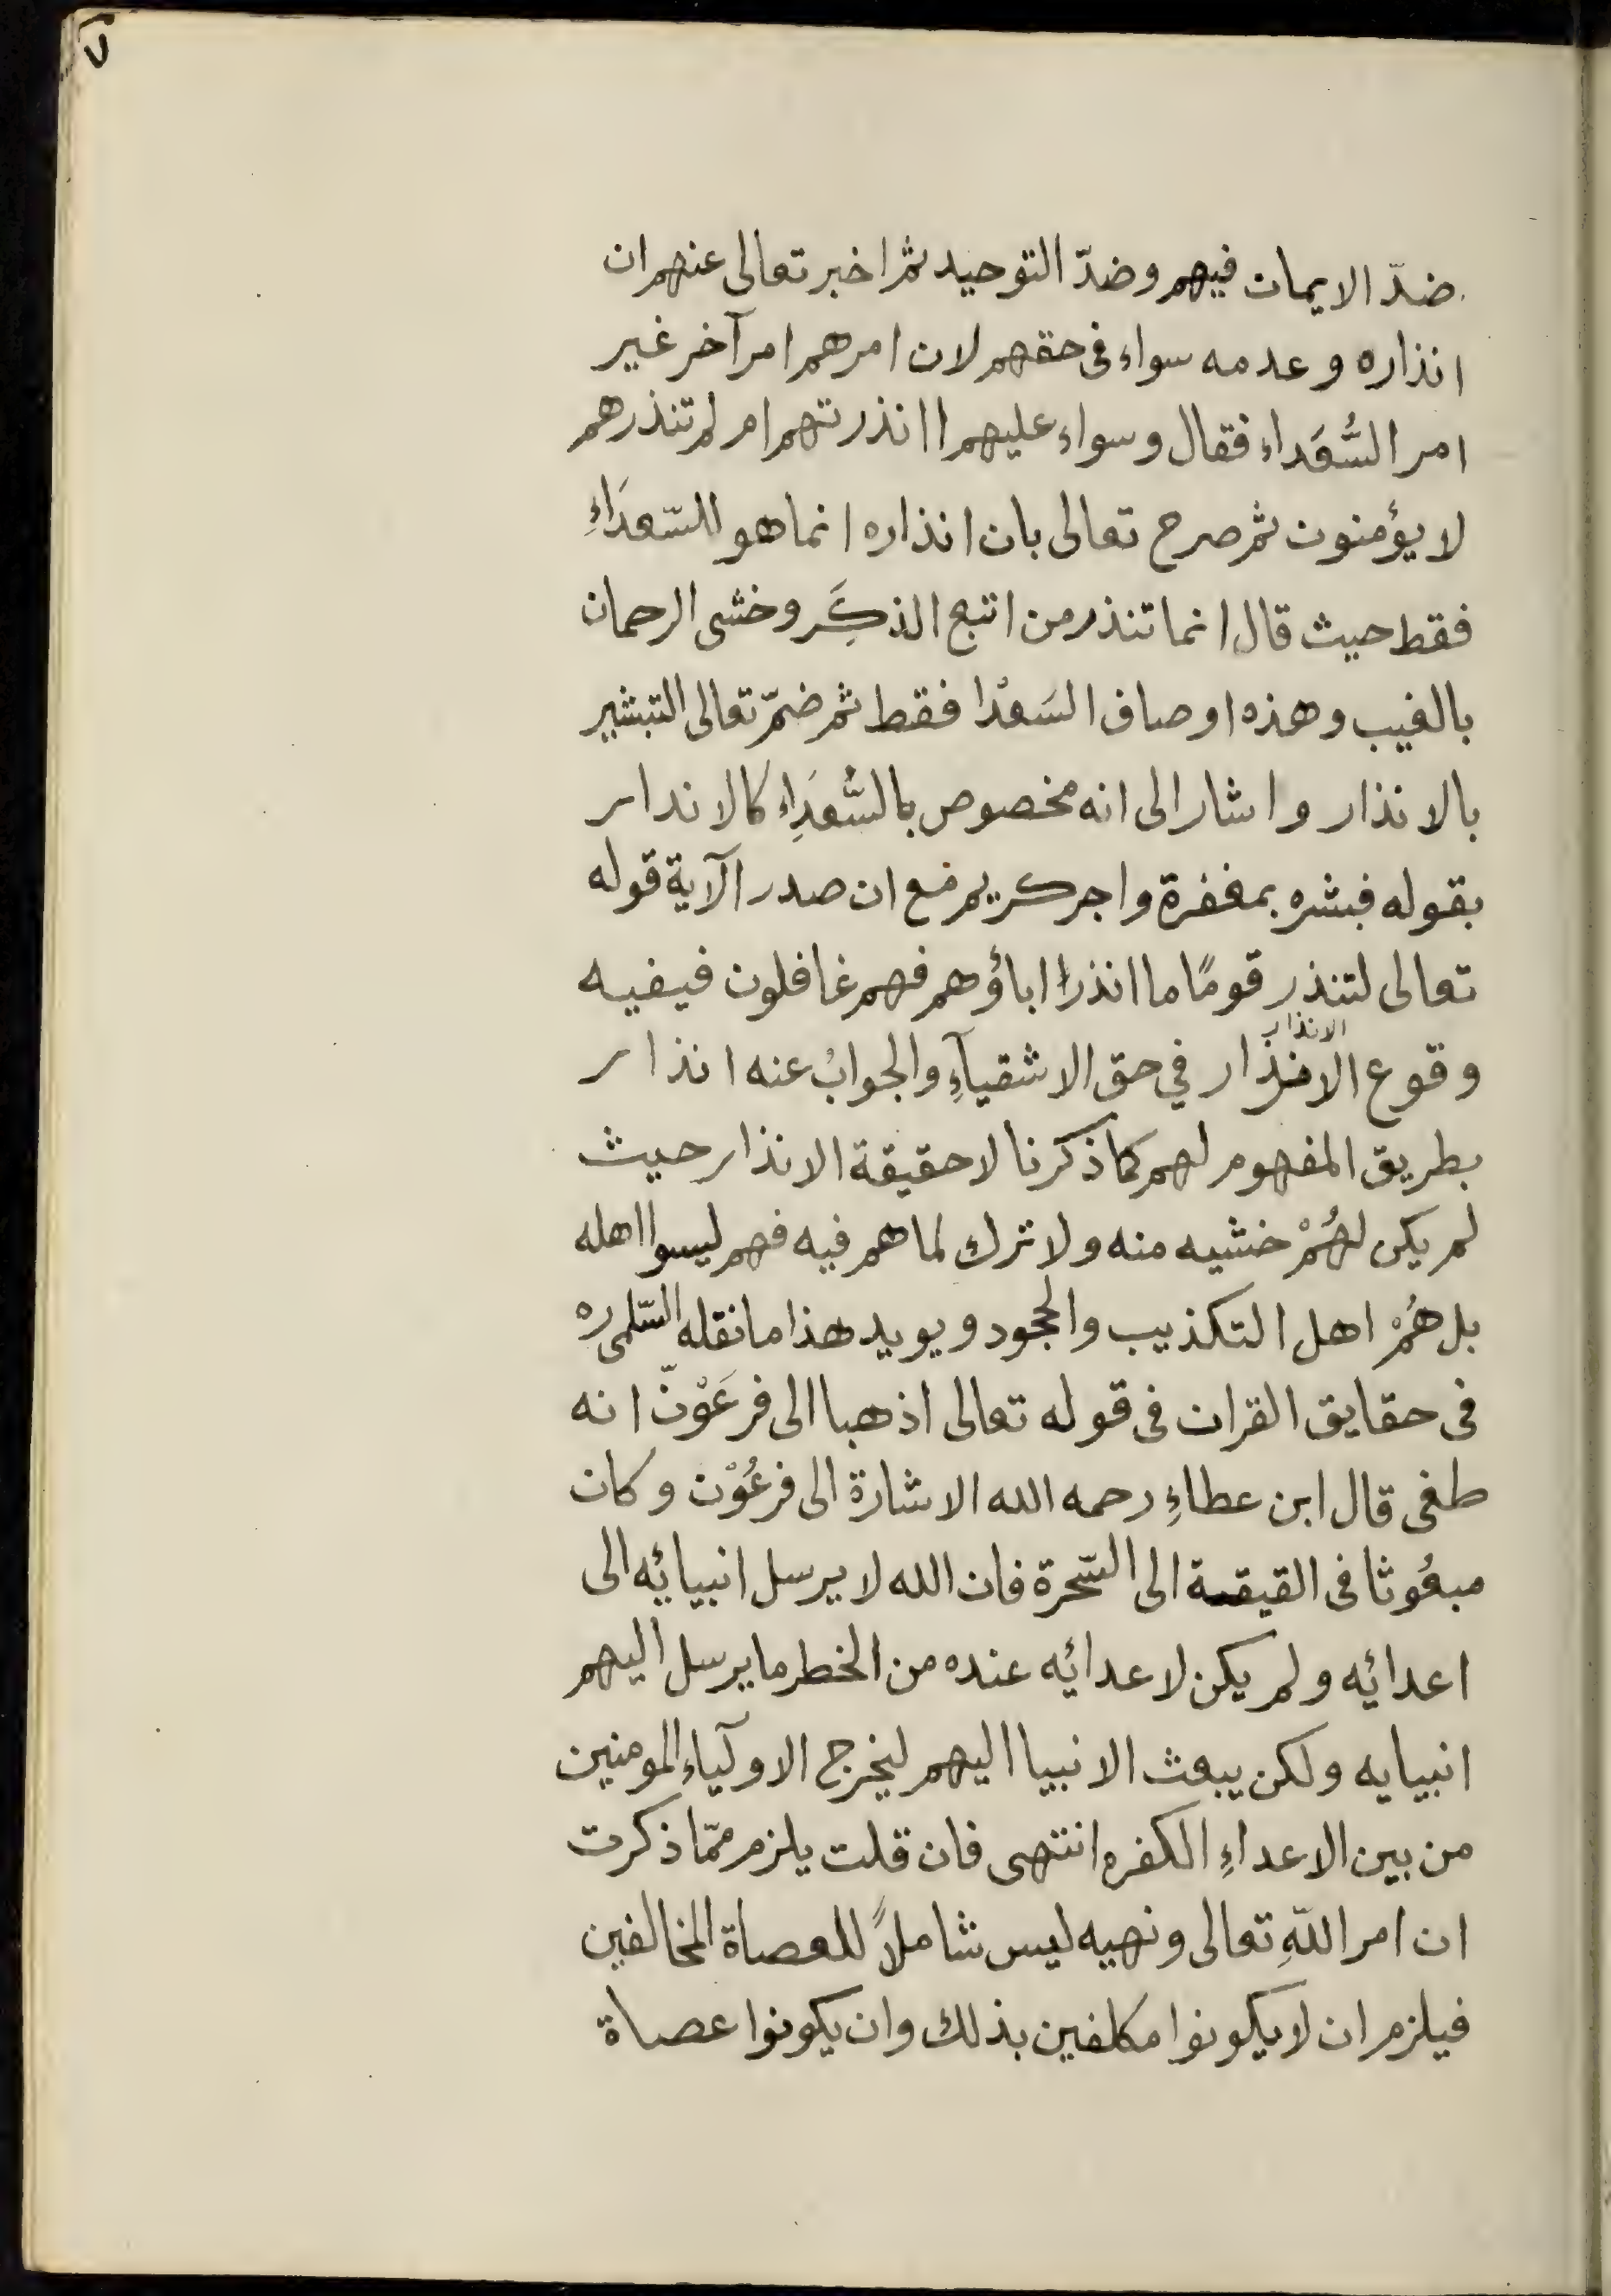 ٧
ضدّ الايمان فيهم وضدّ التوحيد ثم اخبر تعالى عنهم ان
انذاره وعدمه سواء فى حقهم لان امرهم امر آخر غير
امر السُّعَداء فقال وسواء عليهم اانذرتهم ام لم تنذرهم
لا يؤمنون ثم صرح تعالى بان انذاره انما هو للسّعدَاءِ
فقط حيث قال انما تنذر من اتبع الذكِرَ وخشى الرحمان
بالغيب وهذه اوصاف السَعدْا فقط ثم ضمّ تعالى التبشير
بالانذار واشار الى انه مخصوص بالسُّعَدِاء كالاندار
بقوله فبشره بمغفرة واجر كريم مع ان صدر الآية قوله
تعالى لتنذر قومًا ما انذر اباؤهم فهم غافلون فيفيه
الانذار
وقوع الانذار في حق الاشقيآءِ والجوابُ عنه انذار
بطريق المفهوم لهم كما ذكرنا لا حقيقة الانذار حيث
لم يكن لهُمْ خشيه منه ولا ترك لما هم فيه فهم ليسوا اهله
بل هُمْ اهل التكذيب والجحود ويويد هذا ما نقله السّلمى ره
فى حقايق القران فى قوله تعالى اذهبا الى فرعَوْنّ انه
طغى قال ابن عطاءِ رحمه الله الاشارة الى فرعُوْن وكان
مبعُوثا فى القيقة الى السّحرة فان الله لا يرسل انبيائه الى
اعدائه ولم يكن لاعدائه عنده من الخطر ما يرسل اليهم
انبيايه ولكن يبعث الانبيا اليهم ليخرج الاوليآء المومنين
من بين الاعداءِ الكفره انتهى فان قلت يلزم ممّا ذكرت
ان امر اللّهِ تعالى ونهيه ليس شاملاً للعصاة المخالفين
فيلزم ان لا يكونوا مكلفين بذلك وان يكونوا عصاة